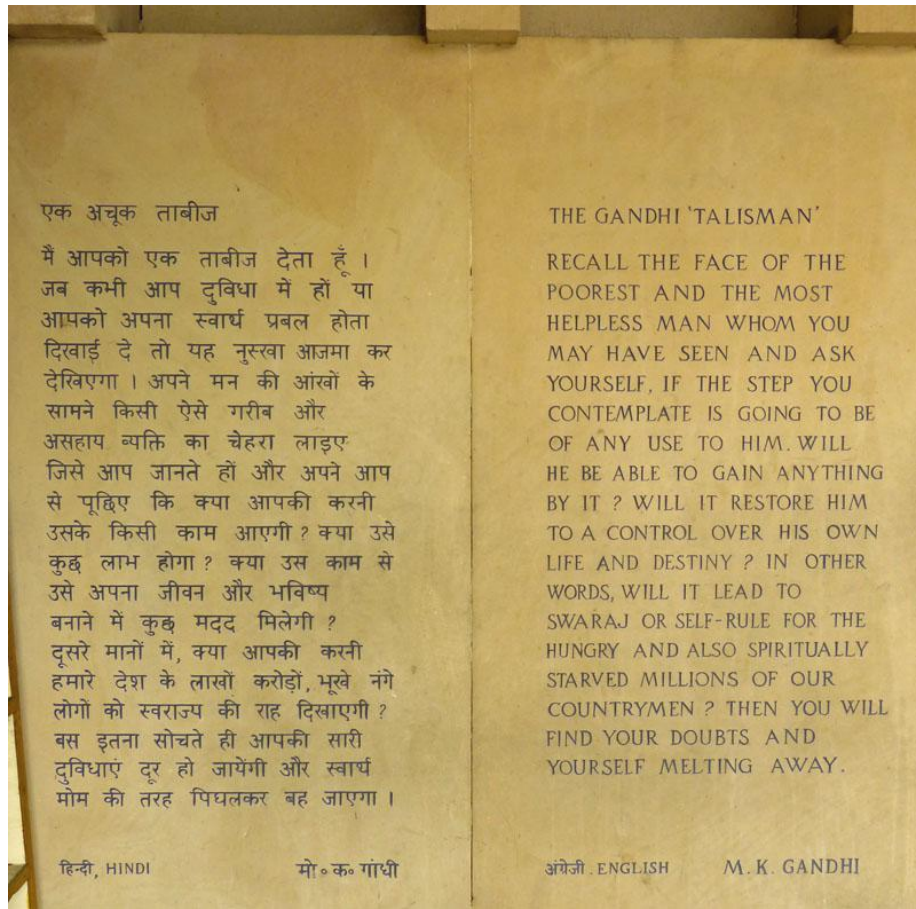 एक अचूक ताबीज
मैं आपको एक ताबीज देता हूँ ।
जब कभी आप दुविधा में हों या
आपको अपना स्वार्थ प्रबल होता
दिखाई दे तो यह नुस्खा आजमा कर
देखिएगा । अपने मन की आंखों के
सामने किसी ऐसे गरीब और
असहाय व्यक्ति का चेहरा लाइए
जिसे आप जानते हों और अपने आप
से पूछिए कि क्या आपकी करनी
उसके किसी काम आएगी ? क्या उसे
कुछ लाभ होगा ? क्या उस काम से
उसे अपना जीवन और भविष्य
बनाने में कुछ मदद मिलेगी ?
दूसरे मानों में, क्या आपकी करनी
हमारे देश के लाखों करोड़ों, भूखे नंगे
लोगो को स्वराज्य की राह दिखाएगी ?
बस इतना सोचते ही आपकी सारी
दुविधाएं दूर हो जायेंगी और स्वार्थ
मोम की तरह पिघलकर बह जाएगा ।
हिन्दी, HINDI मो॰ क॰ गांधी
THE GANDHI 'TALISMAN'
RECALL THE FACE OF THE
POOREST AND THE MOST
HELPLESS MAN WHOM YOU
MAY HAVE SEEN AND ASK
YOURSELF, IF THE STEP YOU
CONTEMPLATE IS GOING TO BE
OF ANY USE TO HIM. WILL
HE BE ABLE TO GAIN ANYTHING
BY IT ? WILL IT RESTORE HIM
TO A CONTROL OVER HIS OWN
LIFE AND DESTINY ? IN OTHER
WORDS, WILL IT LEAD TO
SWARAJ OR SELF-RULE FOR THE
HUNGRY AND ALSO SPIRITUALLY
STARVED MILLIONS OF OUR
COUNTRYMEN ? THEN YOU WILL
FIND YOUR DOUBTS AND
YOURSELF MELTING AWAY.
अंग्रेजी. ENGLISH M. K. GANDHI